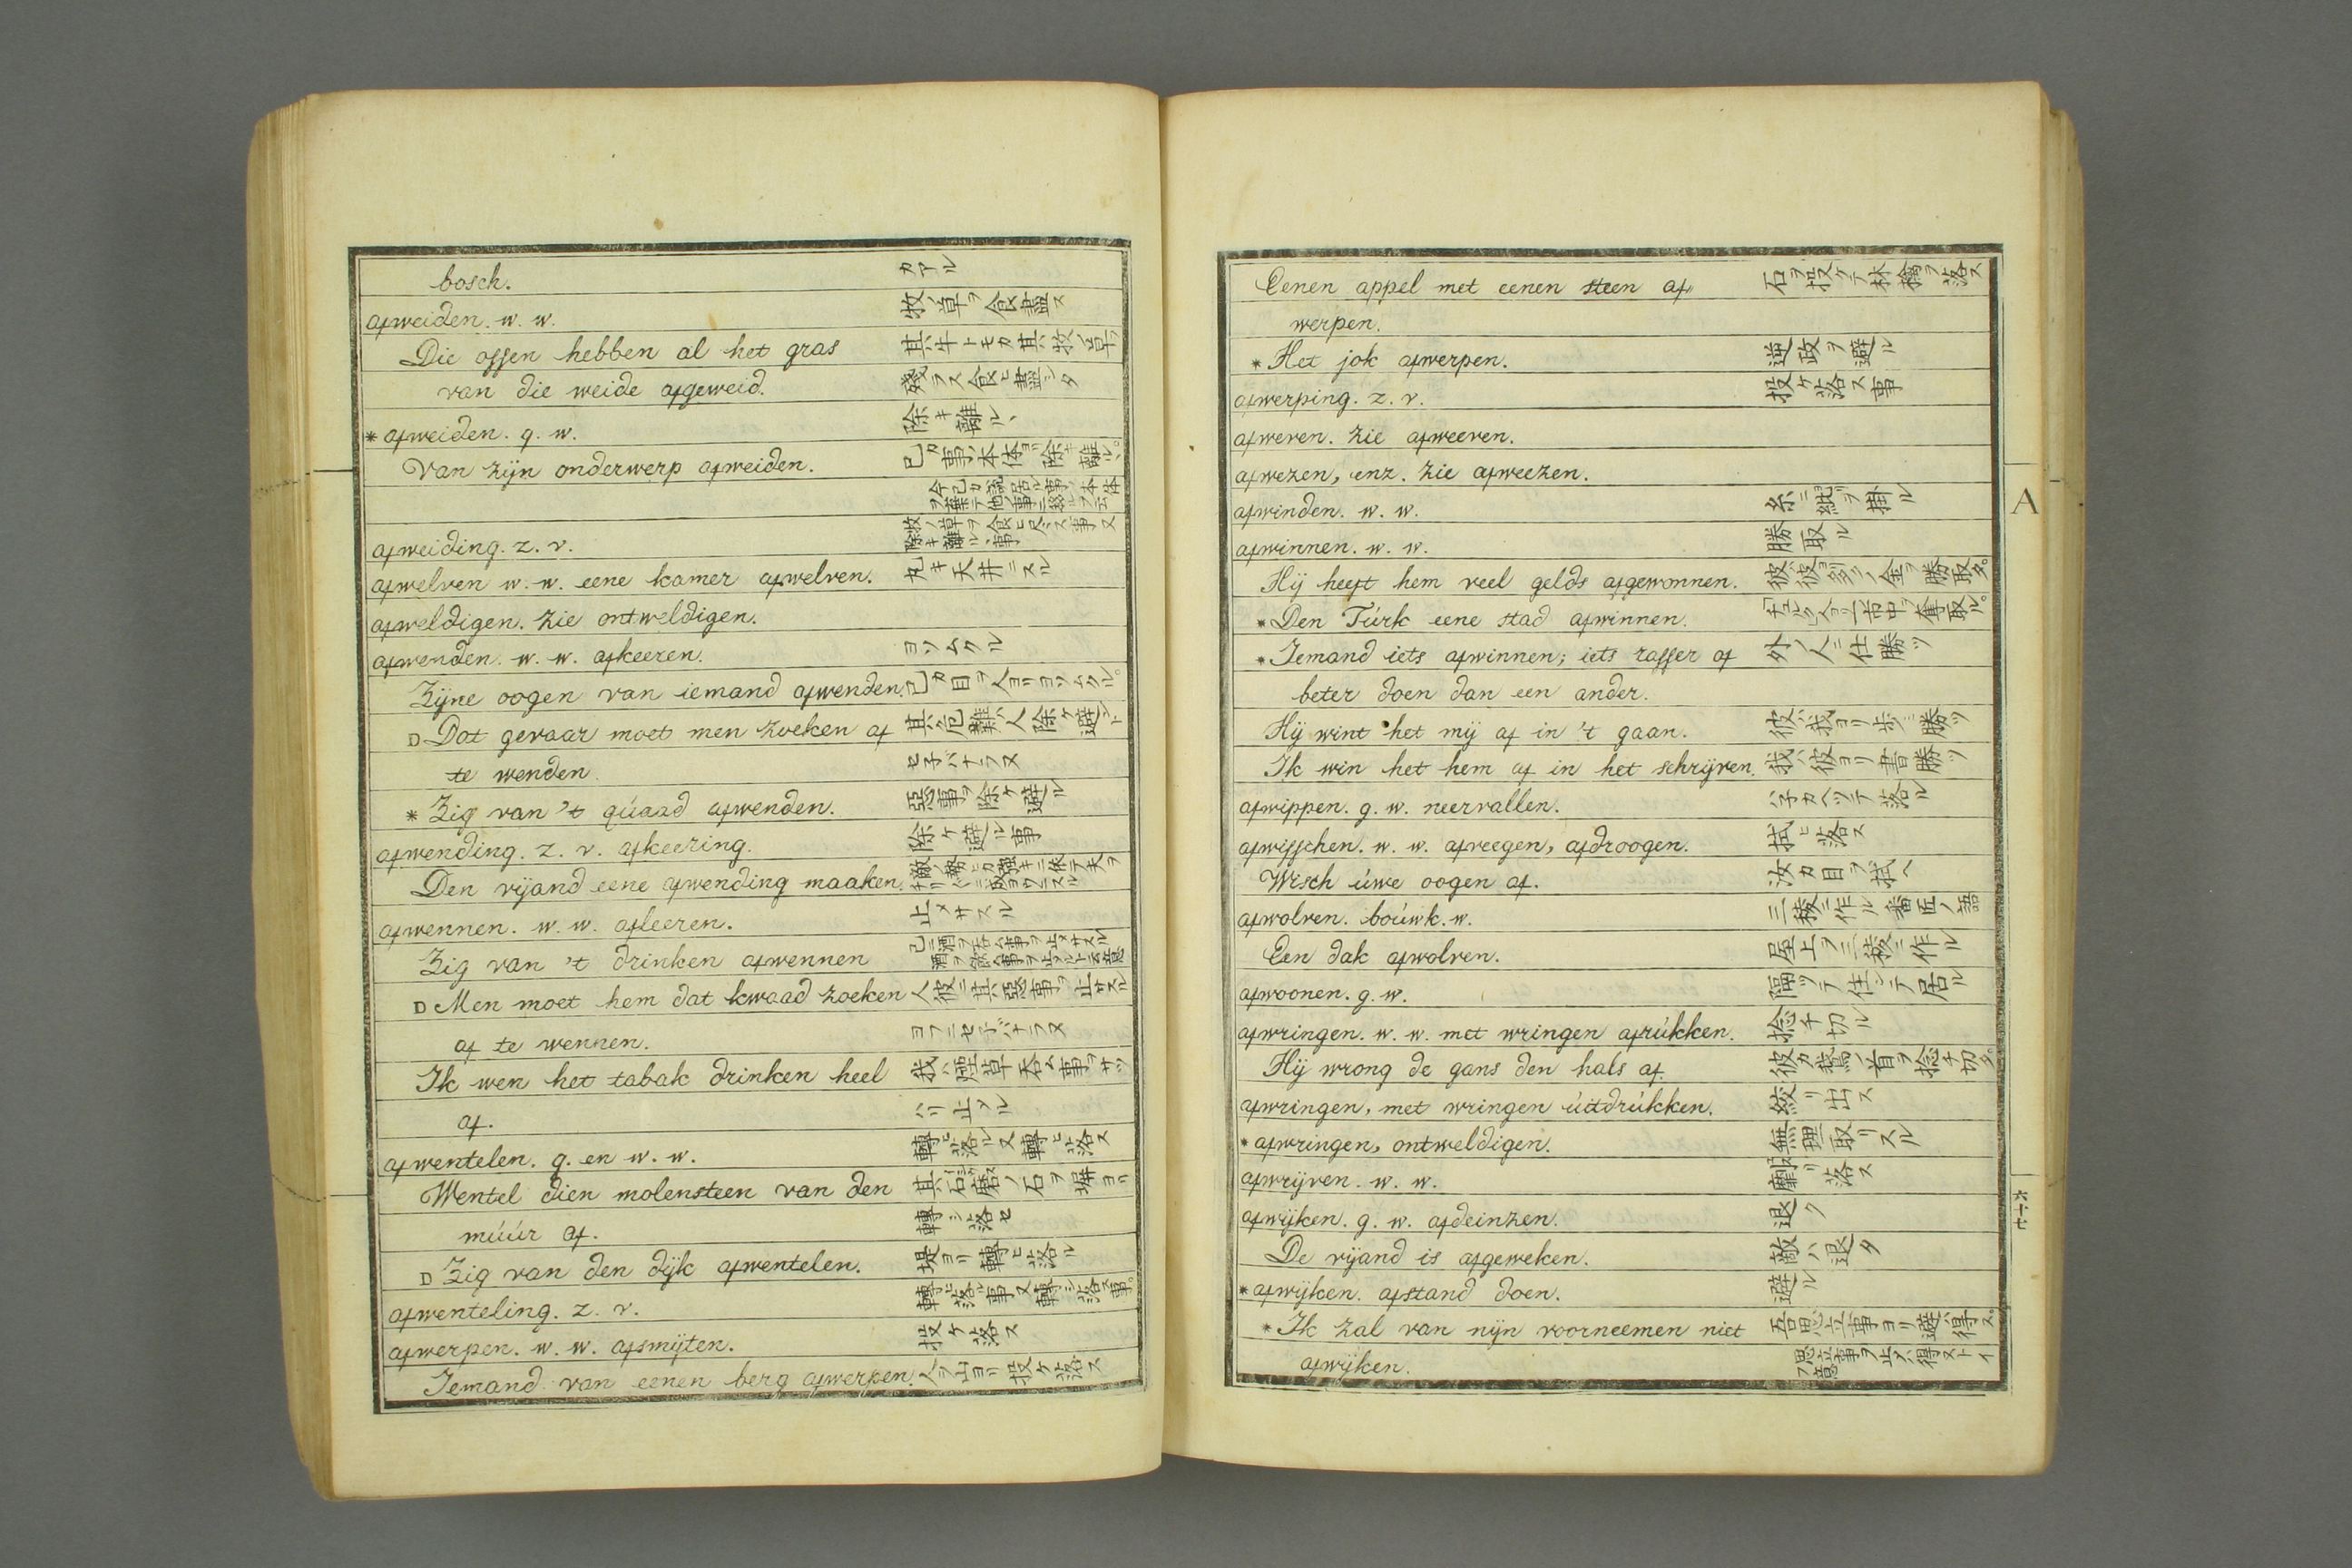 bosch. カアル
afweiden. w. w. 牧ノ草ヲ食盡ス
Die ossen hebben al het gras 其牛トモカ其牧ノ草ヲ
van die weide afgeweid. 殘ラス食ヒ盡シタ
* afweiden. g. w. 除キ離ル、
Van zijn onderwerp afweiden. 己カ事ノ本体ヨリ除キ離ル、
afweiding. z. v. 牧ノ草ヲ食ヒ尽ス事又除キ離ル、事
afwelven w. w. eene kamer afwelven. 丸キ天井ニスル
afweldigen. zie ontweldigen.
afwenden. w. w. afkeeren. ヨソムクル
Zijne oogen van iemand afwenden. 己カ目ヲ人ヨリヨソムクル。
D Dat gevaar moet men zoeken af 其危難ハ人除ケ避ント
te wenden. セ子バナラヌ
* Zig van 't qúaad afwenden. 惡事ヲ除ケ避ル
afwending. z. v. afkeering. 除ケ避ル事
Den vijand eene afwending maaken.
afwennen. w. w. afleeren. 止メサスル
Zig van 't drinken afwennen 己ニ酒ヲ呑ム事ヲ止メサスル
D Men moet hem dat kwaad zoeken 人彼ニ其惡事ヲ止サスル
af te wennen. ヨフニセ子バナラヌ
Ik wen het tabak drinken heel 我ハ煙草呑ム事ヲサッ
af. ハリ止メル
afwentelen. g. en w. w. 轉ヒ落ル又轉ヒ落ス
Wentel dien molensteen van den 其石磨ノ石ヲ塀ヨリ
múúr af. 轉シ落セ
D Zig van den dijk afwentelen. 堤ヨリ轉ヒ落ル
afwenteling. z. v. 轉ヒ落ル事又轉シ落ス事。
afwerpen. w. w. afsmijten. 投ケ落ス
Iemand van eenen berg afwerpen. 人ヲ山ヨリ投ケ落ス
Eenen appel met eenen steen af= 石ヲ投ケテ林檎ヲ落ス
werpen.
* Het jok afwerpen. 逆政ヲ避ル
afwerping. z. v. 投ケ落ス事
afweren. zie afweeren.
afwezen, enz. zie afweezen.
afwinden. w. w. 糸ニ綛ヲ掛ル
afwinnen. w. w. 勝取ル
Hij heeft hem veel gelds afgewonnen. 彼ハ彼ヨリ多クノ金ヲ勝取タ。
* Den Túrk eene stad afwinnen.
* Iemand iets afwinnen; iets rasser of 外ノ人ニ仕勝ツ
beter doen dan een ander.
Hij wint het mij af in 't gaan. 彼ハ我ヨリ歩ニ勝ツ
Ik win het hem af in het schrijven. 我ハ彼ヨリ書勝ツ
afwippen. g. w. neervallen.
afwisschen. w. w. afveegen, afdroogen. 拭ヒ落ス
Wisch úwe oogen af. 汝カ目ヲ拭ヘ
afwolven. boúwk. w. 三稜ニ作ル 番匠ノ語
Een dak afwolven. 屋上ヲ三稜ニ作ル
afwoonen. g. w. 隔ツテ住シテ居ル
afwringen. w. w. met wringen afrúkken. 捻チ切ル
Hij wrong de gans den hals af. 彼カ鵞ノ首ヲ捻チ切タ。
afwringen, met wringen úitdrúkken. 絞リ出ス
* afwringen, ontweldigen. 無理取リスル
afwrijven. w. w. 磨リ落ス
afwijken. g. w. afdeinzen. 退ク
De vijand is afgeweken. 敵ハ退タ
* afwijken. afstand doen. 避ル
* Ik zal van nijn voorneemen niet 吾思立事ヨリ避得ズ。
afwijken. 思立事ヲ止ズ得ストイフ意
A
六十七